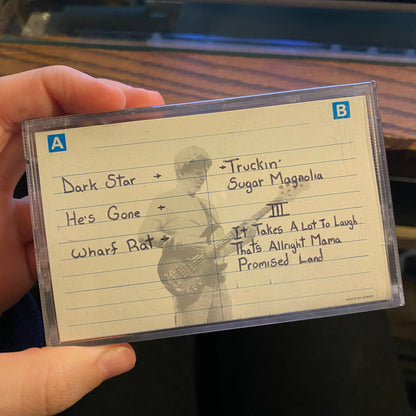 A
B
Dark Star →
He's Gone →
Wharf Rat →
→ Truckin'
Sugar Magnolia
III
It Takes A Lot To Laugh
Thats Allright Mama
Promised Land